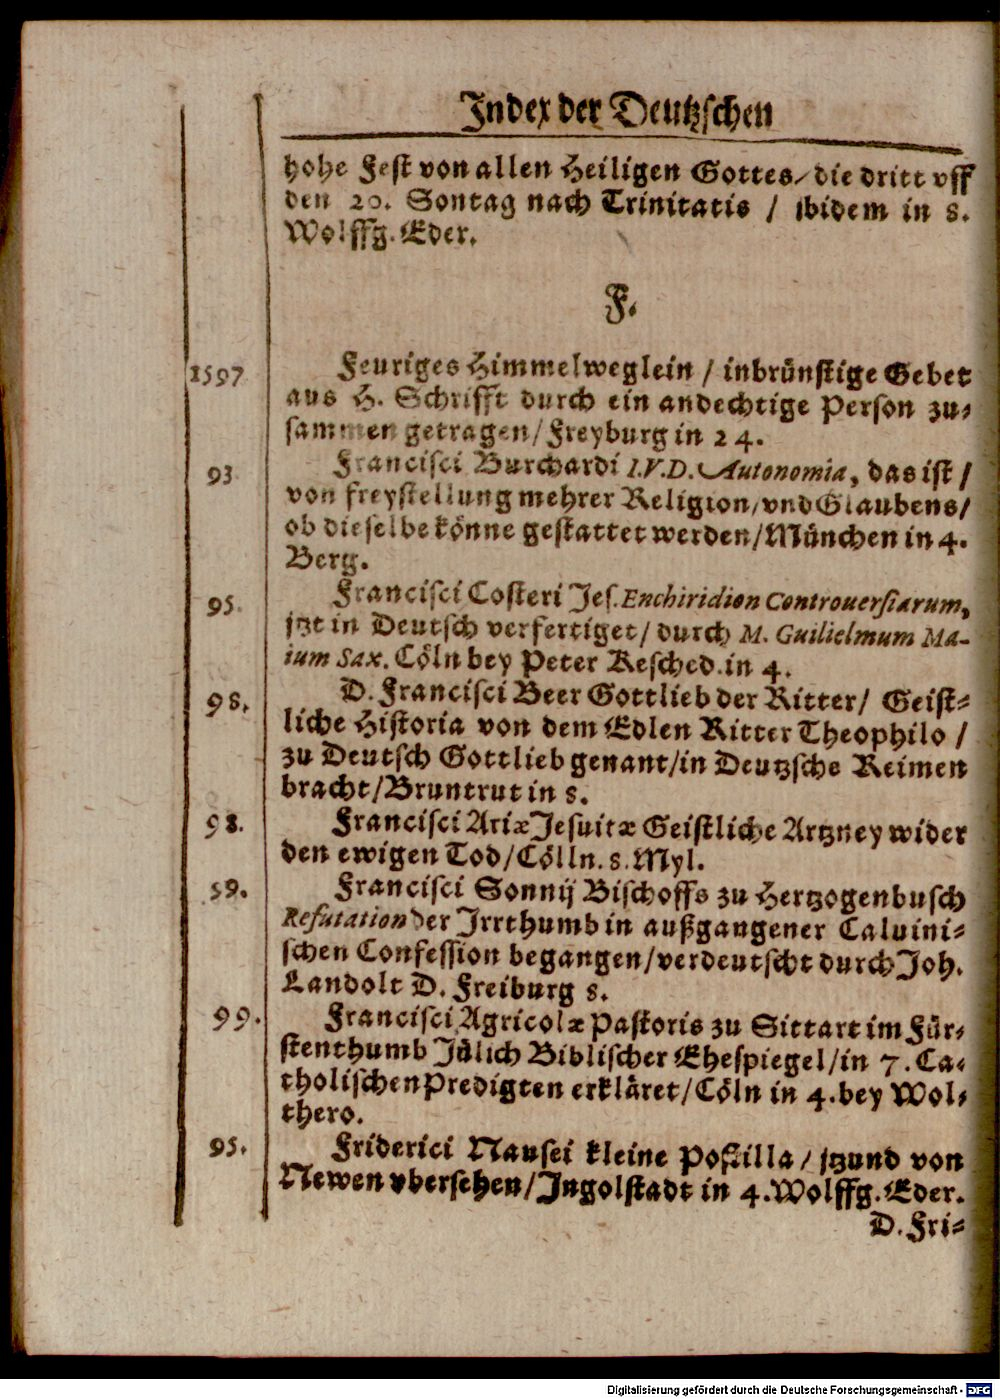 Index der Deutzschen
hohe Fest von allen Heiligen Gottes / die dritt vff
den 20. Sontag nach Trinitatis / ibidem in 8.
Wolffg. Eder.
F.
1597 Feuriges Himmelweglein / inbrünstige Gebet
aus H. Schrifft durch ein andechtige Person zu-
sammen getragen / Freyburg in 24.
93 Francisci Burchardi I.V.D. Autonomia, das ist /
von freystellung mehrer Religion / vnd Glaubens /
ob dieselbe könne gestattet werden / München in 4.
Berg.
95. Francisci Costeri Jes. Enchiridion Controuersiarum,
jtzt in Deutsch verfertiget / durch M. Guilielmum Ma-
ium Sax. Cöln bey Peter Kesched. in 4.
98. D. Francisci Beer Gottlieb der Ritter / Geist-
liche Historia von dem Edlen Ritter Theophilo /
zu Deutsch Gottlieb genant / in Deutzsche Reimen
bracht / Bruntrut in 8.
98. Francisci Ariæ Jesuitæ Geistliche Artzney wider
den ewigen Tod / Cölln. 8. Myl.
59. Francisci Sonnij Bischoffs zu Hertzogenbusch
Refutation der Irrthumb in außgangener Caluini-
schen Confession begangen / verdeutscht durch Joh.
Landolt D. Freiburg 8.
99. Francisci Agricolæ Pastoris zu Sittart im Für-
stenthumb Jülich Biblischer Ehespiegel / in 7. Ca-
tholischen Predigten erkläret / Cöln in 4. bey Wol-
thero.
95. Friderici Nausei kleine Postilla / jtzund von
Newen vbersehen / Ingolstadt in 4. Wolffg. Eder.
D. Fri-
Digitalisierung gefördert durch die Deutsche Forschungsgemeinschaft - DFG